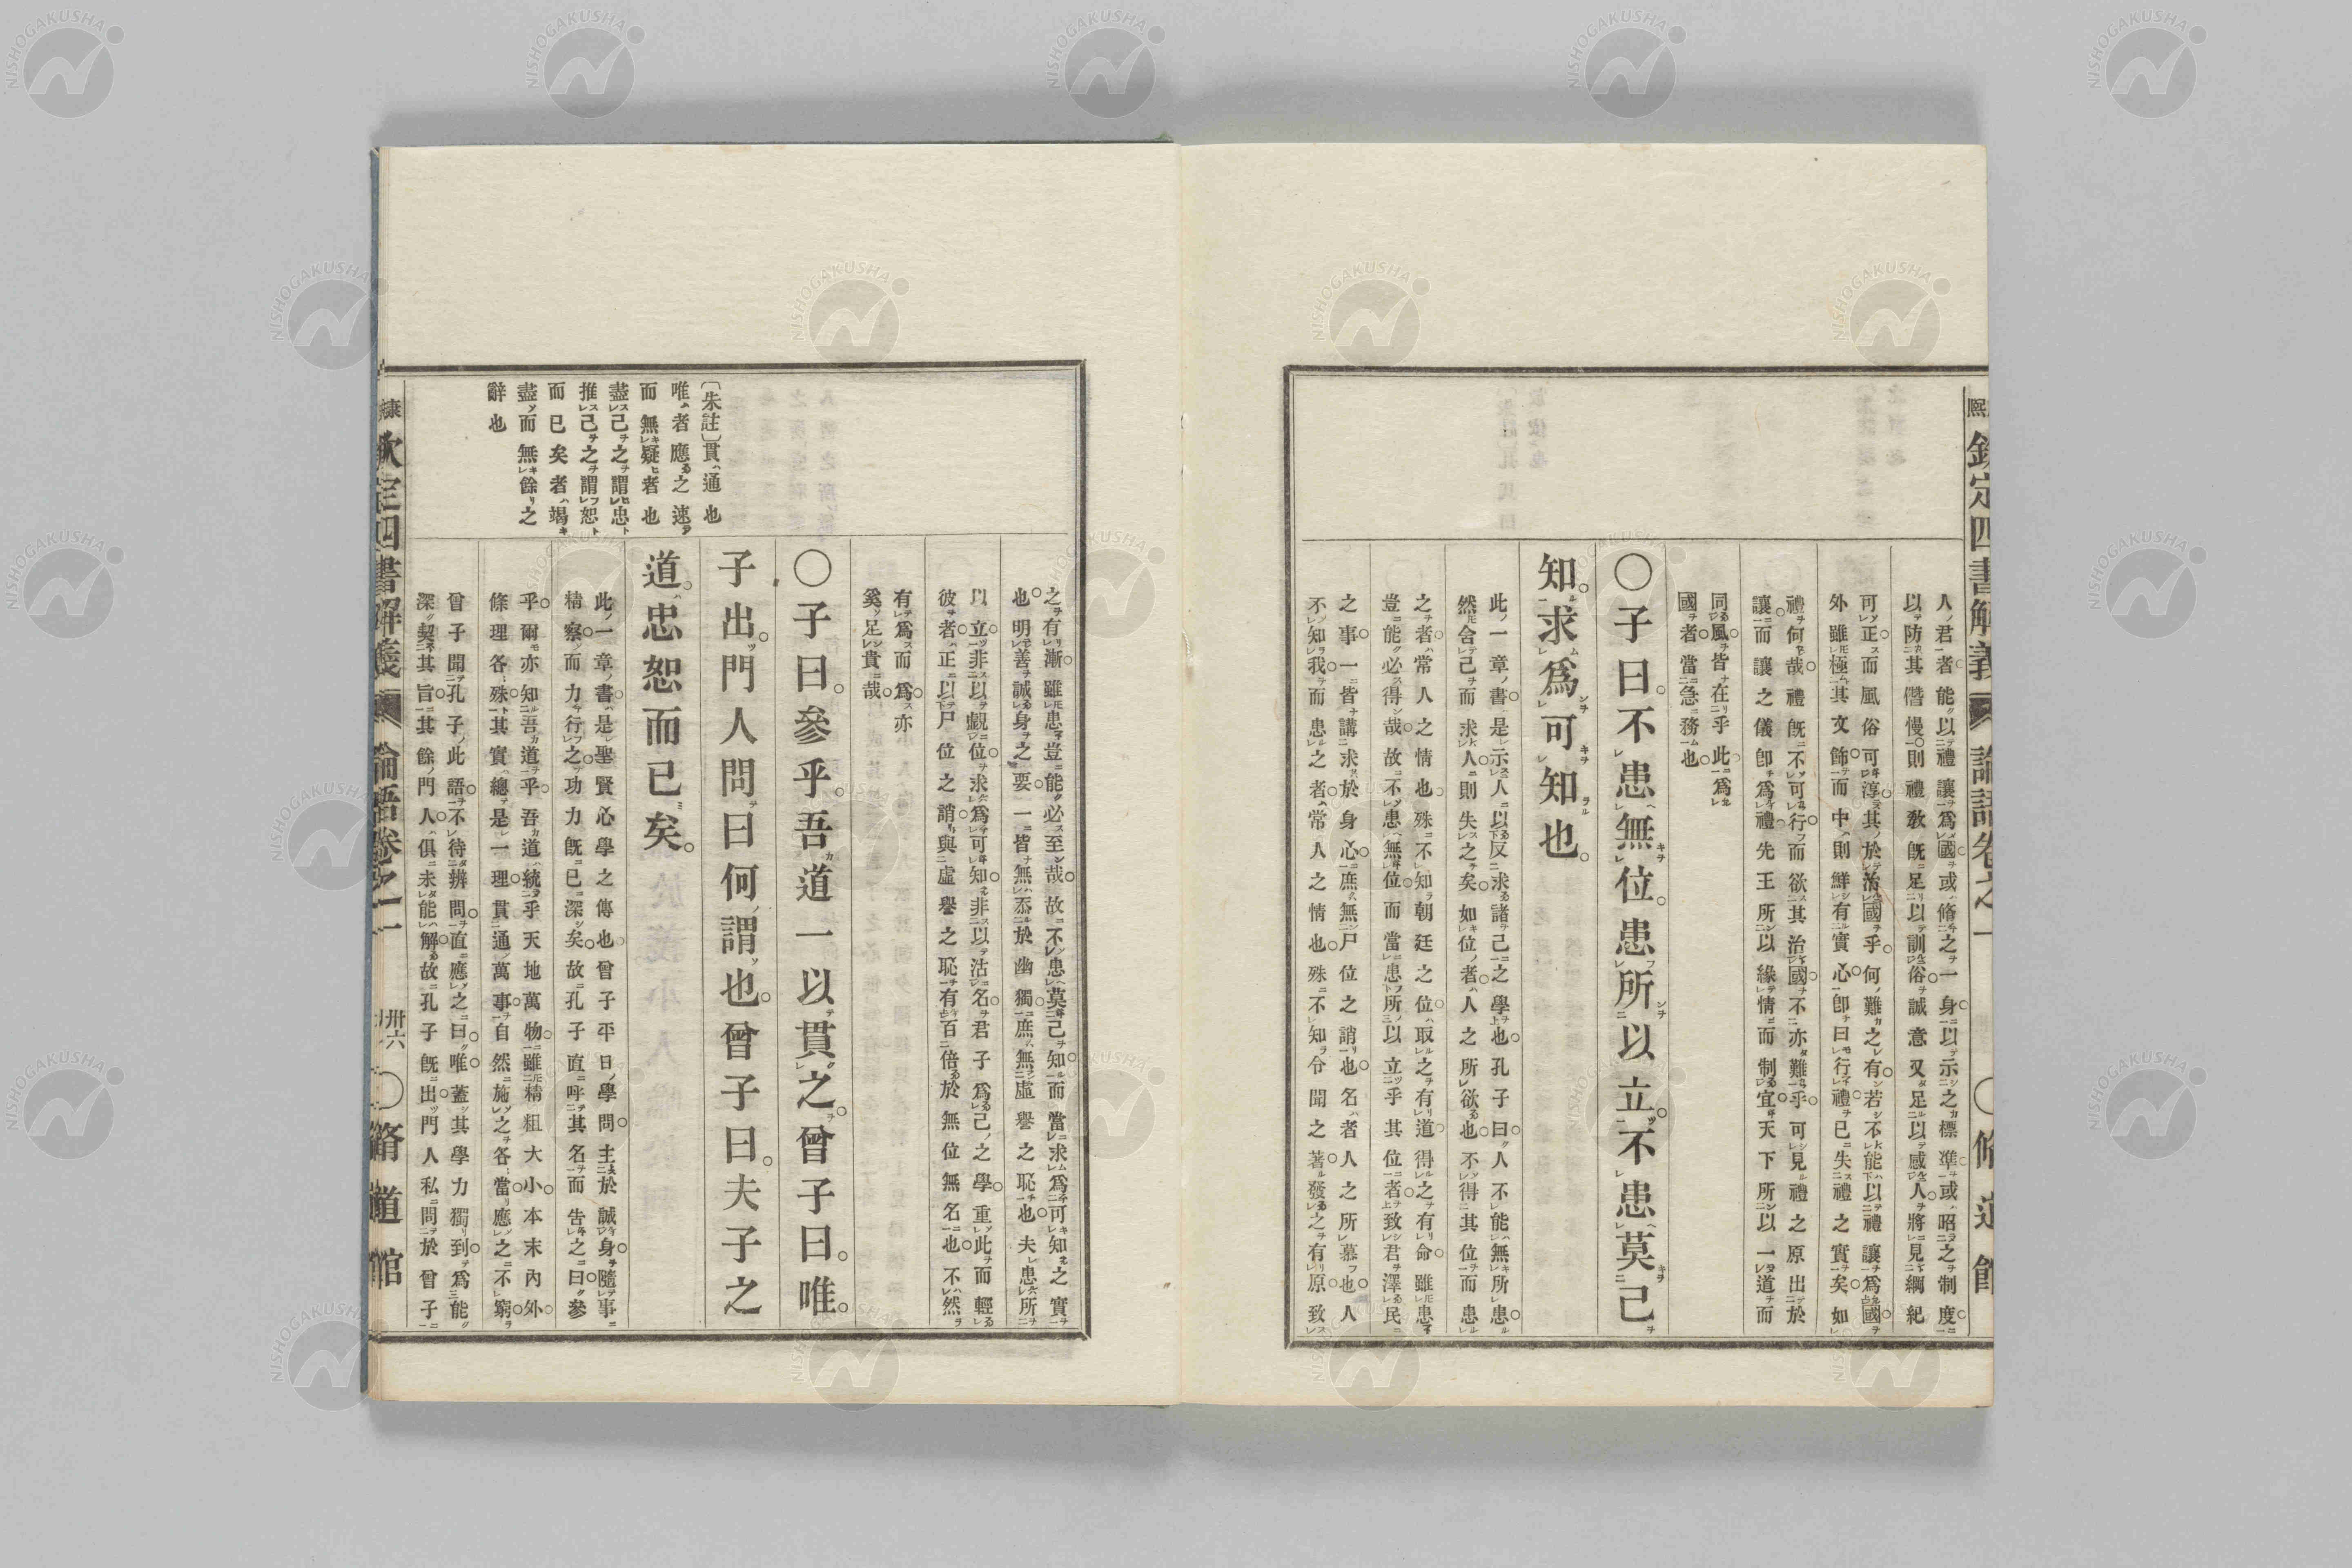 熙 欽定四書解義 論語卷之一 〇脩道館
人君者能以禮讓爲國或脩之一身以示之標準或昭之制度
以防其僭慢則禮教旣足以訓俗誠意又足以感人將見綱紀
可正而風俗可淳其於治國乎何難之有若不能以禮讓爲國
外雖極其文飾而中則鮮有實心卽曰行禮已失禮之實矣如
禮何哉禮旣不可行而欲其治國不亦難乎可見禮之原出於
讓而讓之儀卽爲禮先王所以緣情而制宜天下所以一道而
同風皆在乎此爲
國者當急務也
〇子曰不患無位患所以立不患莫己
知求爲可知也
此一章書是示人以反求諸己之學也孔子曰人不能無所患
然舍己而求人則失之矣如位者人之所欲也不得其位而患
之者常人之情也殊不知朝廷之位取之有道得之有命雖患
豈能必得哉故不患無位而當患所以立乎其位者致君澤民
之事一皆講求於身心庶無尸位之誚也名者人之所慕也人
不知我而患之者常人之情也殊不知令聞之著發之有原致
之有漸雖患豈能必至哉故不患莫己知而當求爲可知之實
也明善誠身之要一皆無忝於幽獨庶無虛譽之恥也夫患所
以立非以覬位求爲可知非以沽名君子爲己之學重此而輕
彼者正以尸位之誚與虛譽之恥有百倍於無位無名也不然
有爲而爲亦
奚足貴哉
〇子曰參乎吾道一以貫之曾子曰唯
子出門人問曰何謂也曾子曰夫子之
道忠恕而已矣
〔朱註〕貫通也
唯者應之速
而無疑者也
盡己之謂忠
推己之謂恕
而已矣者竭
盡而無餘之
辭也
此一章書是聖賢心學之傳也曾子平日學問主於誠身隨事
精察而力行之功力旣已深矣故孔子直呼其名而告之曰參
乎爾亦知吾道乎吾道統乎天地萬物雖精粗大小本末內外
條理各殊其實總是一理貫通萬事自然施之各當應之不窮
曾子聞孔子此語不待辨問直應之曰唯蓋其學力獨到爲能
深契其旨其餘門人俱未能解故孔子旣出門人私問於曾子
康 欽定四書解義 論語卷之一 卅六 〇脩道館